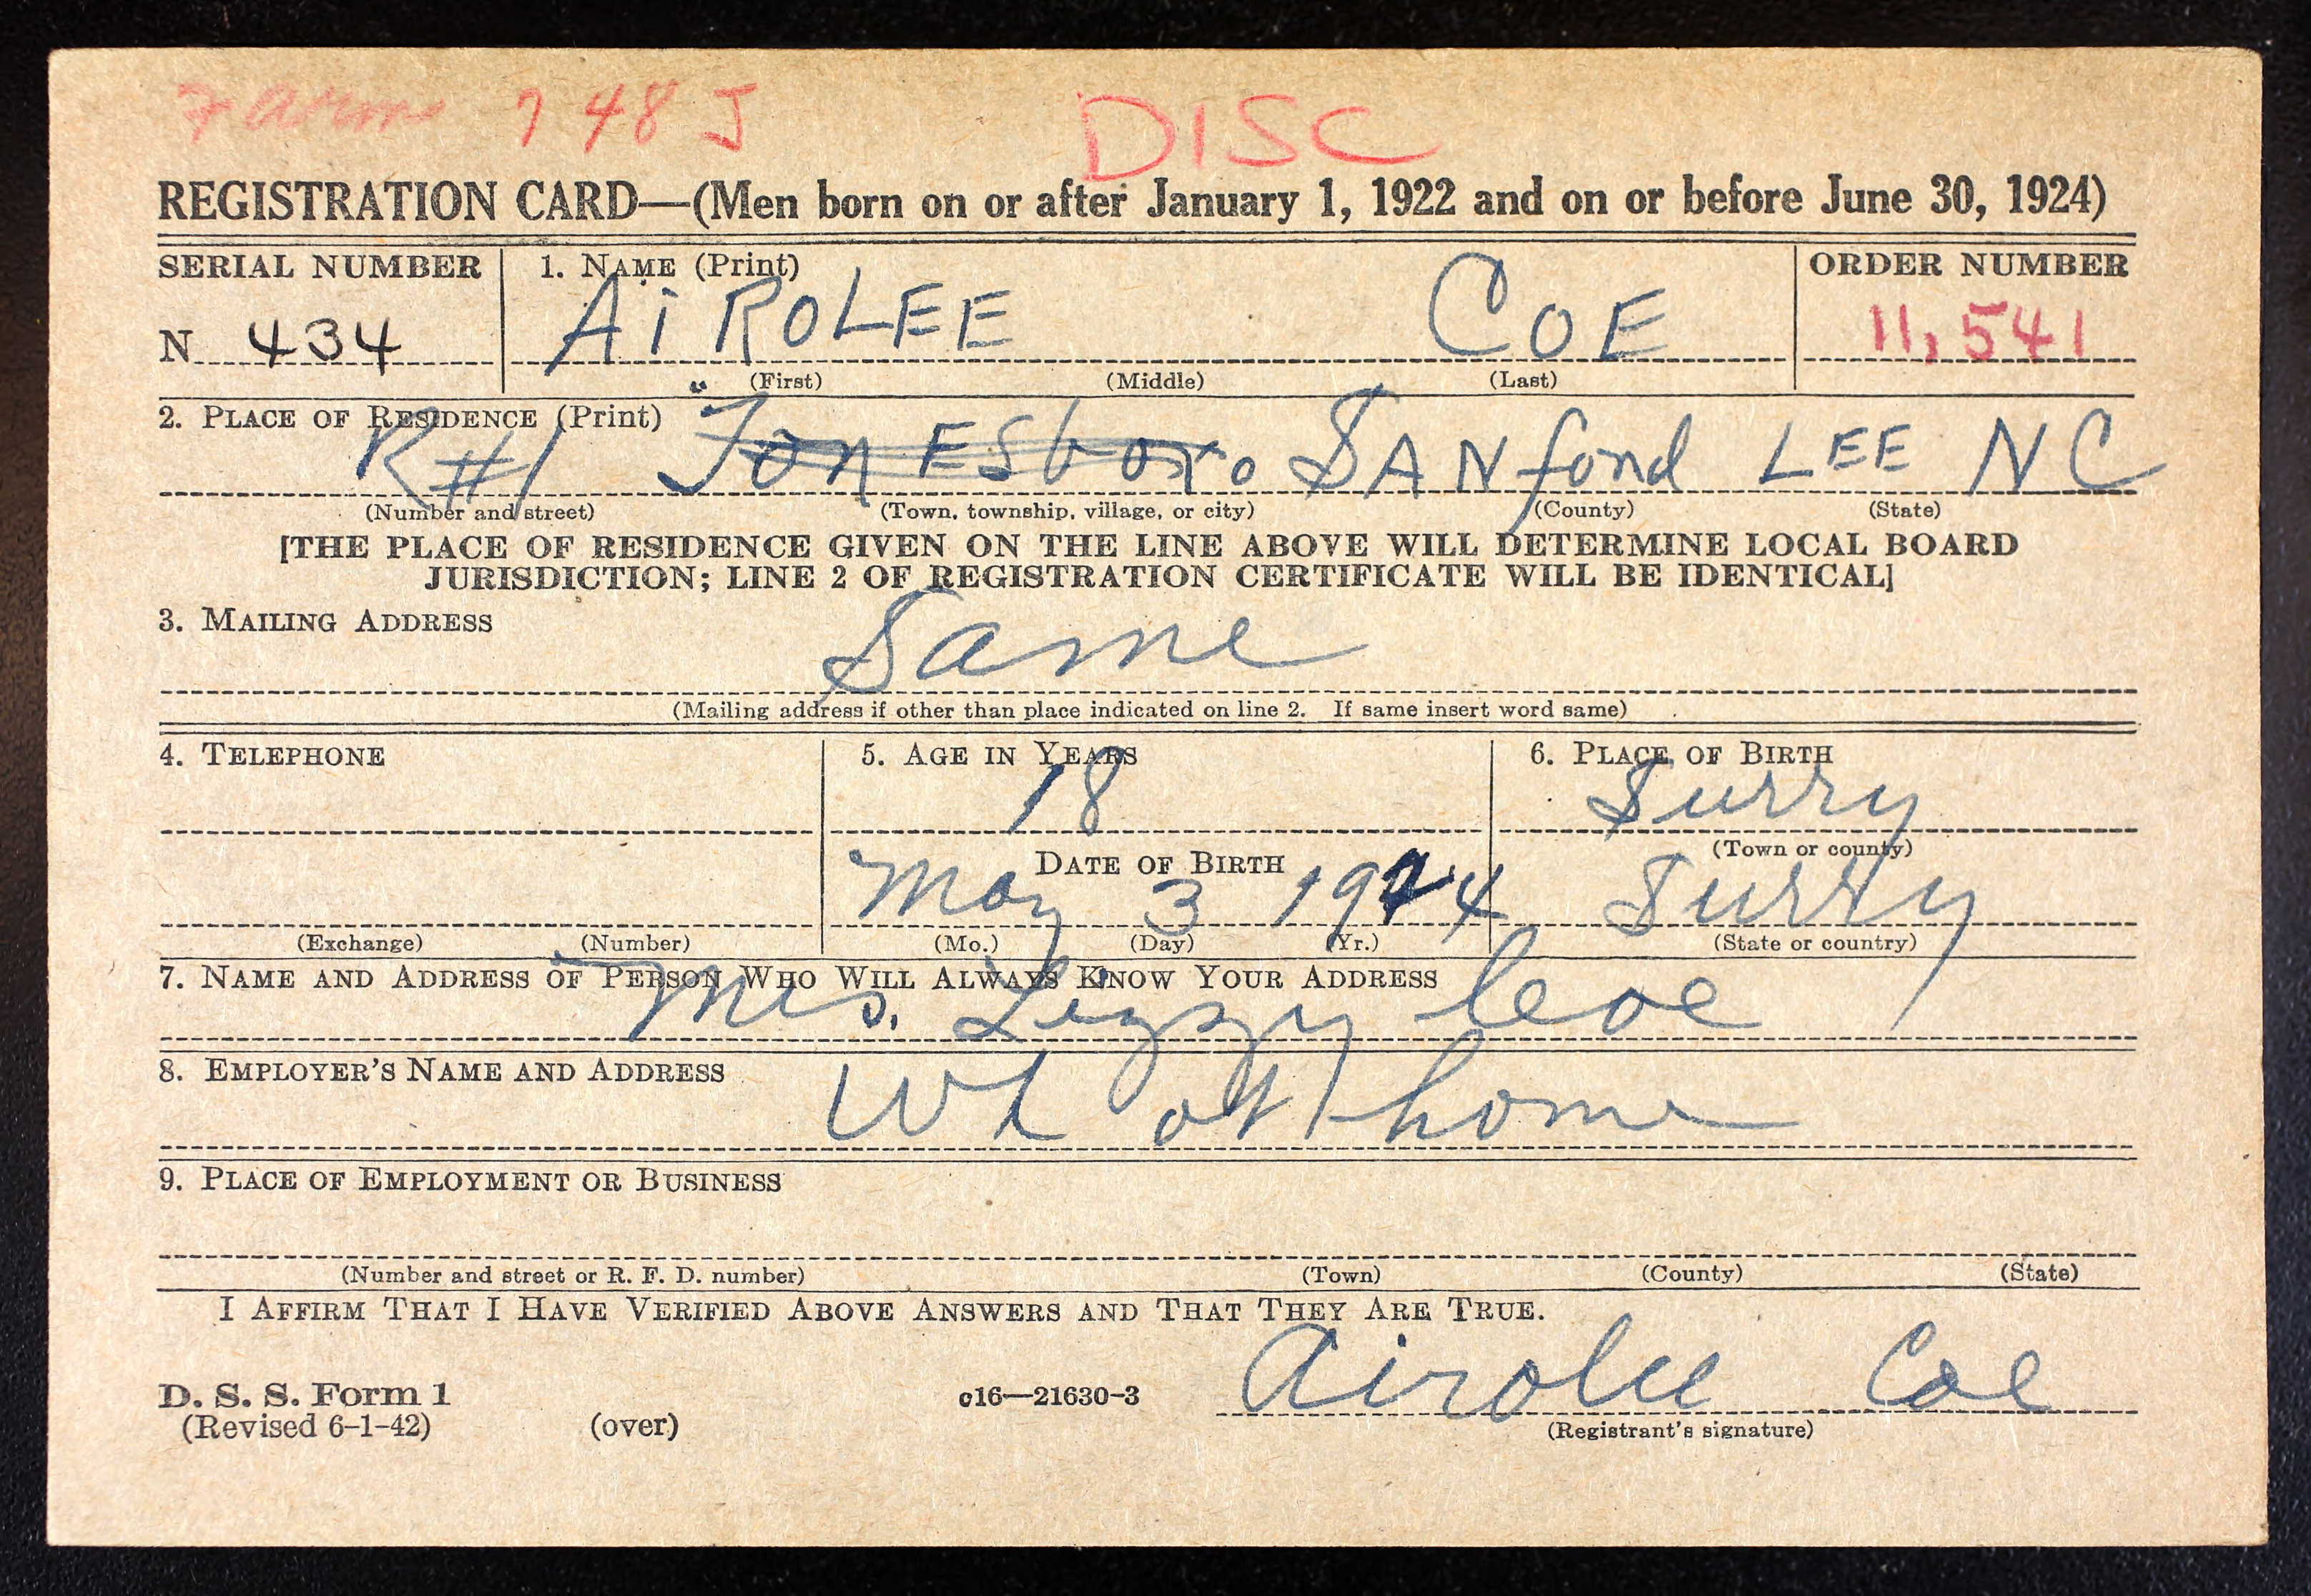 Farm 748 J DISC
REGISTRATION CARD—(Men born on or after January 1, 1922 and on or before June 30, 1924)
SERIAL NUMBER 1. NAME (Print) ORDER NUMBER
N 434 AiROLEE COE 11,541
(First) (Middle) (Last)
2. PLACE OF RESIDENCE (Print)
R#1 Jonesboro SANford LEE NC
(Number and street) (Town, township, village, or city) (County) (State)
[THE PLACE OF RESIDENCE GIVEN ON THE LINE ABOVE WILL DETERMINE LOCAL BOARD
JURISDICTION; LINE 2 OF REGISTRATION CERTIFICATE WILL BE IDENTICAL]
3. MAILING ADDRESS
Same
(Mailing address if other than place indicated on line 2. If same insert word same)
4. TELEPHONE 5. AGE IN YEARS 6. PLACE OF BIRTH
18 Surry
(Town or county)
DATE OF BIRTH
May 3 1924 Surry
(Exchange) (Number) (Mo.) (Day) (Yr.) (State or country)
7. NAME AND ADDRESS OF PERSON WHO WILL ALWAYS KNOW YOUR ADDRESS
Mrs. Lizzy Coe
8. EMPLOYER'S NAME AND ADDRESS
at home
9. PLACE OF EMPLOYMENT OR BUSINESS
(Number and street or R. F. D. number) (Town) (County) (State)
I AFFIRM THAT I HAVE VERIFIED ABOVE ANSWERS AND THAT THEY ARE TRUE.
Airolee Coe
D. S. S. Form 1 c16—21630-3
(Revised 6-1-42) (over) (Registrant's signature)